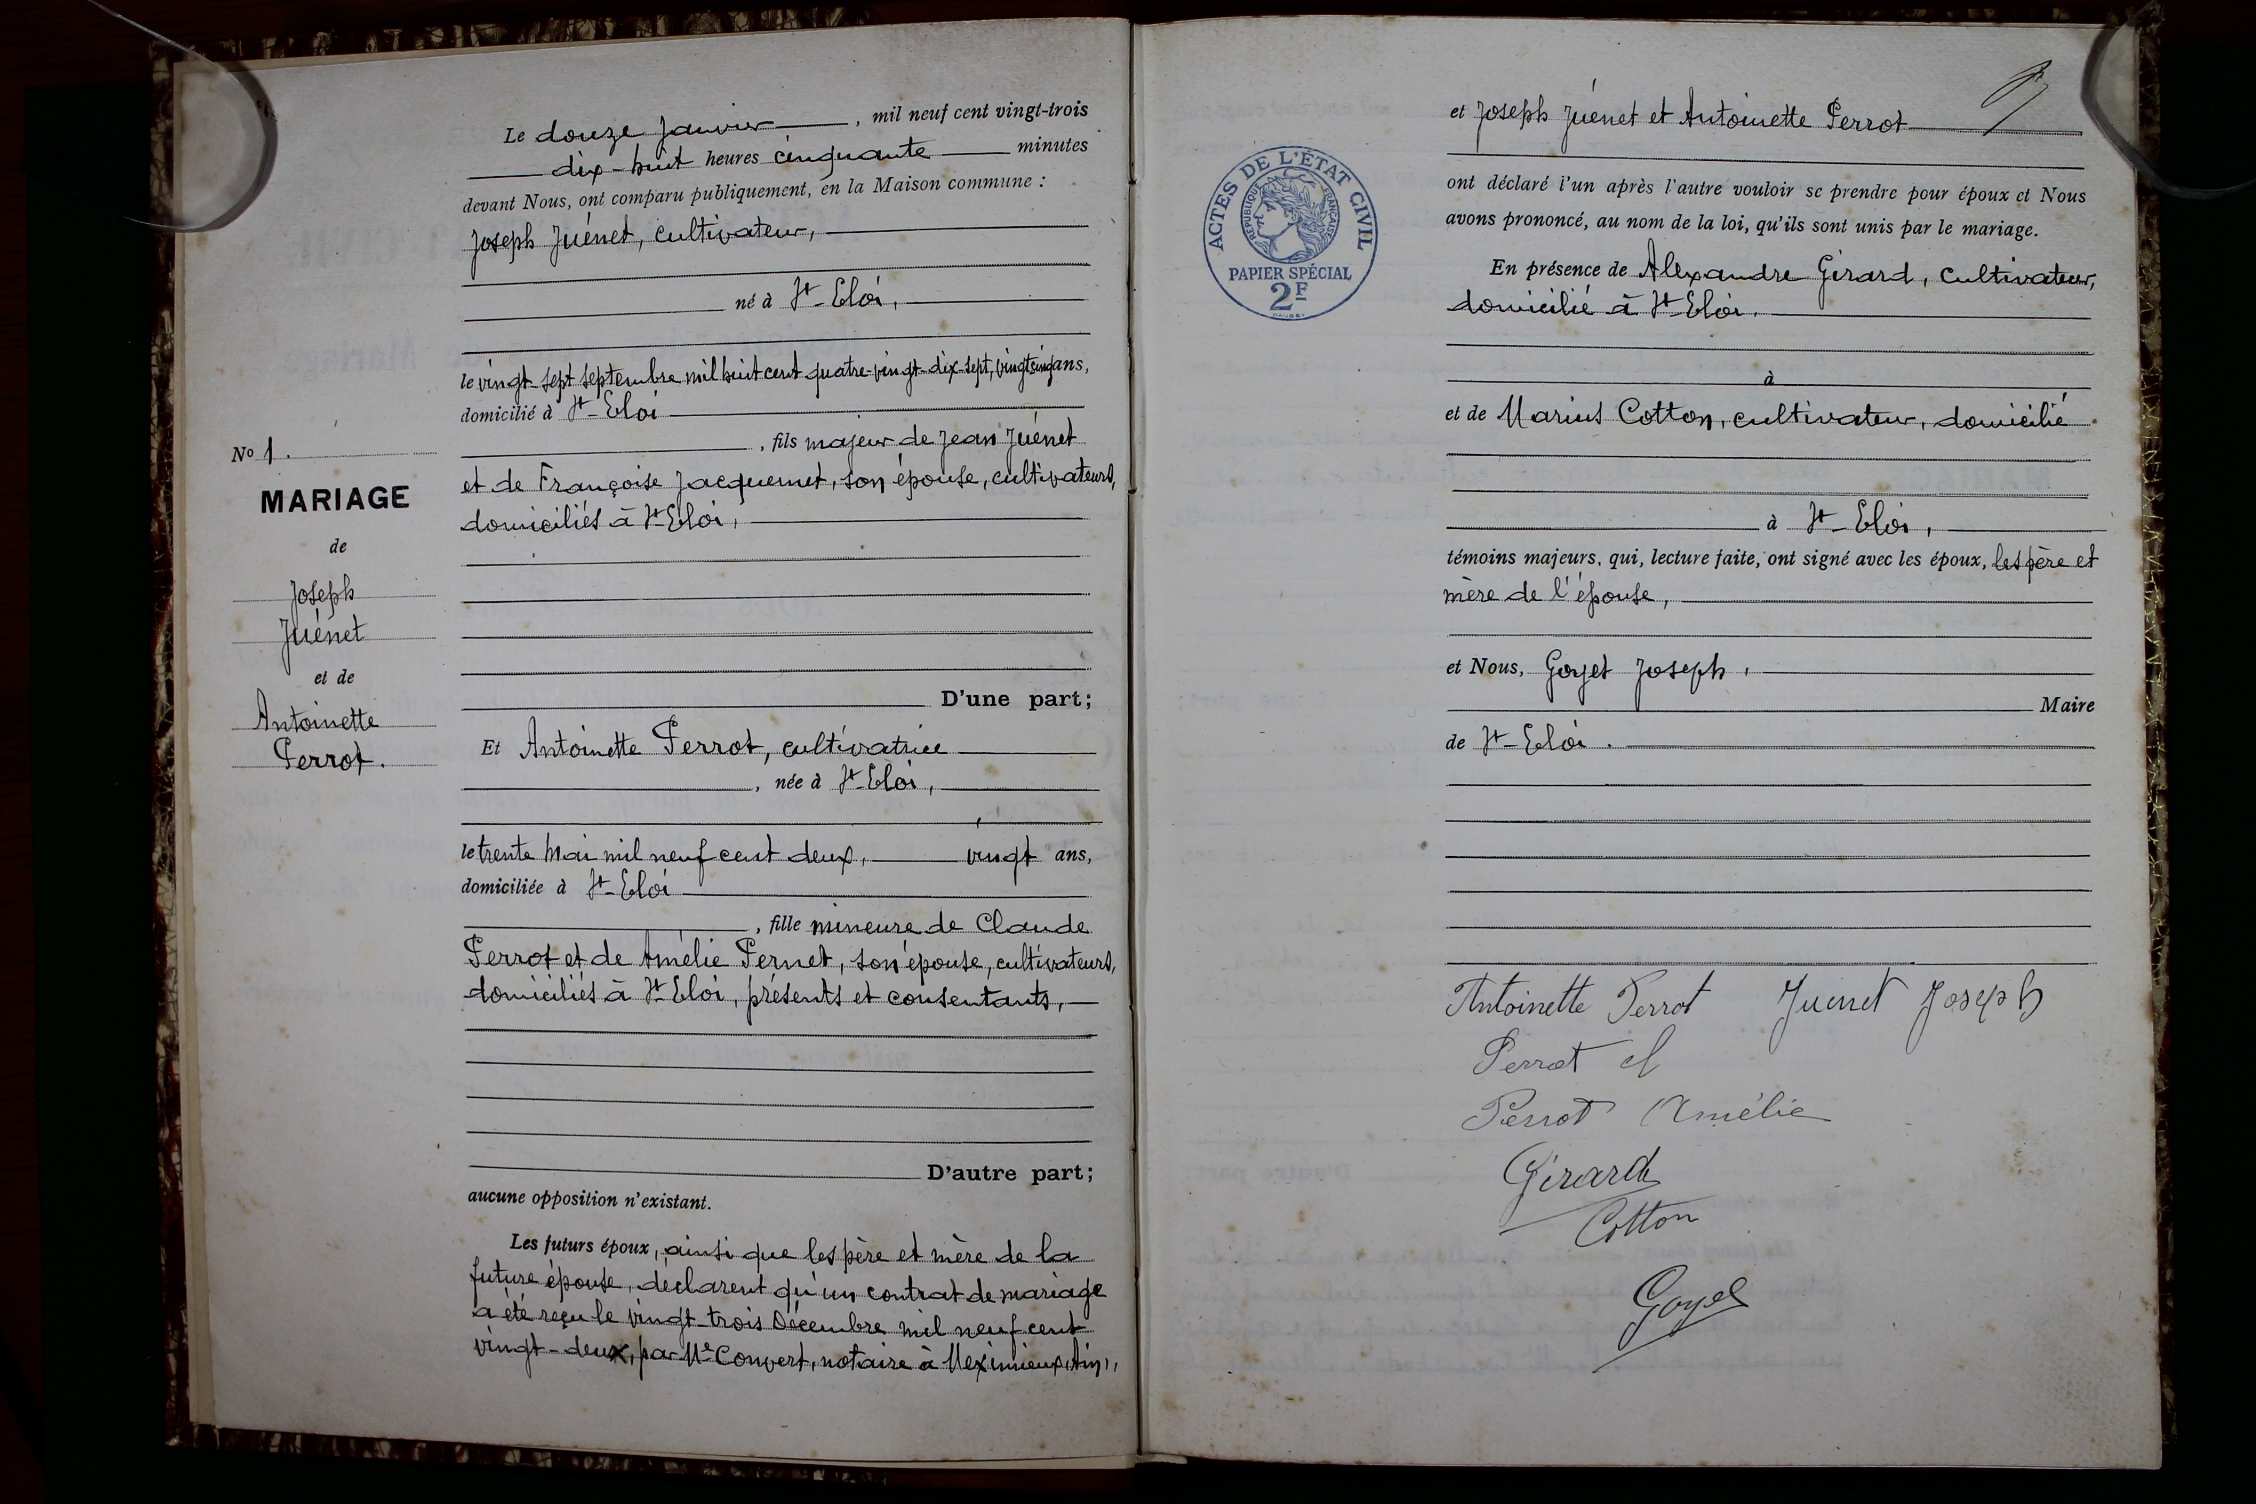 Le douze Janvier, mil neuf cent vingt-trois
dix-huit heures cinquante minutes
devant Nous, ont comparu publiquement, en la Maison commune :
Joseph Juénet, cultivateur,
né à St-Eloi,
le vingt-sept septembre mil huit cent quatre-vingt-dix-sept, vingt cinq ans,
domicilié à St-Eloi
, fils majeur de Jean Juénet
et de Françoise Jacquemet, son épouse, cultivateurs,
domiciliés à St-Eloi,
D'une part;
Et Antoinette Perrot, cultivatrice
, née à St-Eloi,
le trente Mai mil neuf cent deux, vingt ans,
domiciliée à St-Eloi
, fille mineure de Claude
Perrot et de Amélie Pernet, son épouse, cultivateurs,
domiciliés à St-Eloi, présents et consentants,
D'autre part;
aucune opposition n'existant.
Les futurs époux, ainsi que les père et mère de la
future épouse, déclarent qu'un contrat de mariage
a été reçu le vingt-trois Décembre mil neuf cent
vingt-deux, par Me Convert, notaire à Meximieux (Ain),
No 1.
MARIAGE
de
Joseph
Juénet
et de
Antoinette
Perrot.
et Joseph Juénet et Antoinette Perrot
ont déclaré l'un après l'autre vouloir se prendre pour époux et Nous
avons prononcé, au nom de la loi, qu'ils sont unis par le mariage.
En présence de Alexandre Girard, cultivateur,
domicilié à St-Eloi.
à
et de Marius Cotton, cultivateur, domicilié
à St-Eloi,
témoins majeurs, qui, lecture faite, ont signé avec les époux, les père et
mère de l'épouse,
et Nous, Goyet Joseph,
Maire
de St-Eloi.
Antoinette Perrot Juenet Joseph
Perrot cl
Perrot Amélie
Girard
Cotton
Goyet
ACTES DE L'ÉTAT CIVIL
RÉPUBLIQUE FRANÇAISE
PAPIER SPÉCIAL
2F